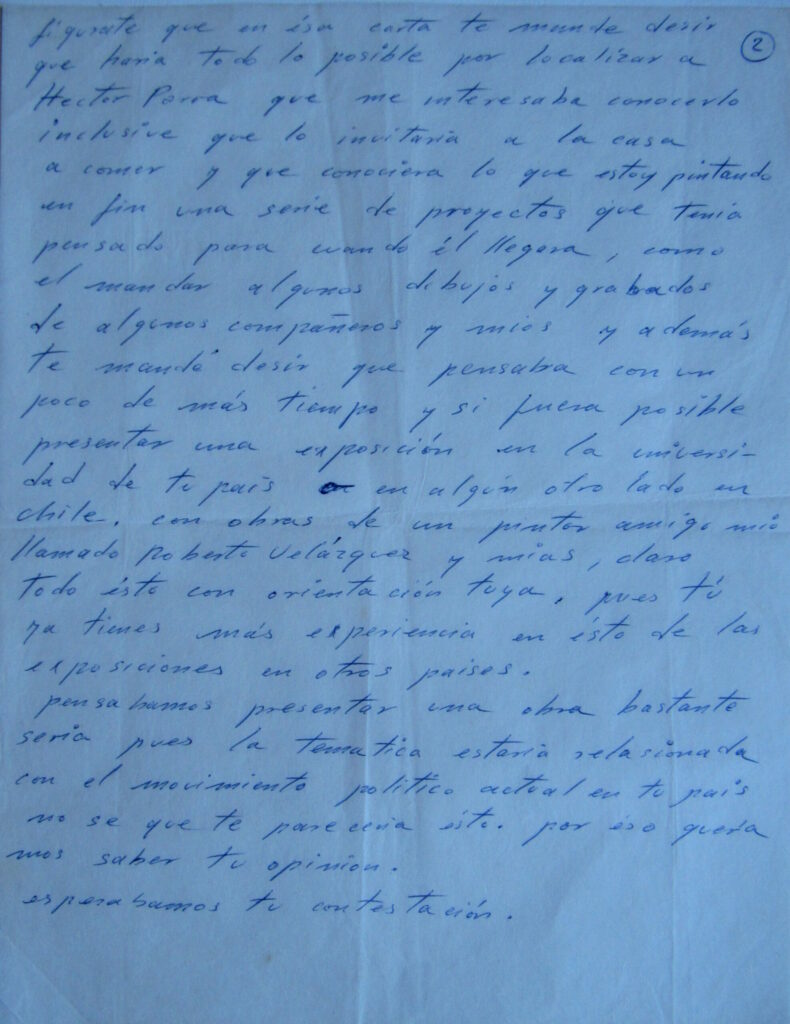 figurate que en ésa carta te mande desir
2
que haria todo lo posible por localizar a
Hector Parra que me interesaba conocerlo
inclusive que lo invitaria a la casa
a comer y que conociera lo que estoy pintando
en fin una serie de proyectos que tenia
pensado para cuando él llegara, como
el mandar algunos dibujos y grabados
de algunos compañeros y mios y además
te mandá desir que pensaba con un
poco de más tiempo y si fuera posible
presentar una exposición en la universi-
dad de tu país en algún otro lado en
chile. con obras de un pintor amigo mio
llamado Roberto Velázquez y mias, claro
todo ésto con orientación tuya, pues tú
ya tienes más experiencia en ésto de las
exposiciones en otros paises.
pensabamos presentar una obra bastante
seria pues la tematica estaria relasionada
con el movimiento politico actual en tu país
no se que te pareceria ésto. por éso queria
mos saber tu opinion.
esperabamos tu contestación.